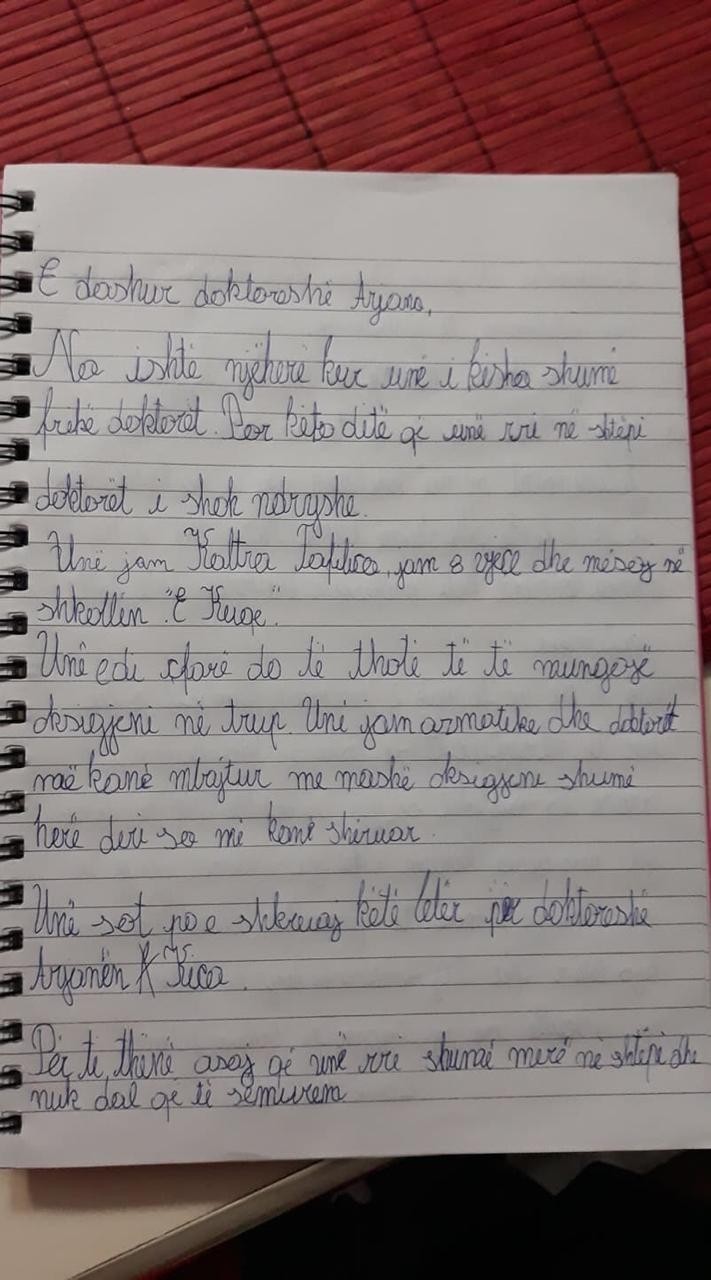 E dashur doktoreshë Aryana,
Na ishte njëherë kur unë i kisha shumë
frikë doktorët. Por këto ditë që unë rri në shtëpi
doktorët i shoh ndryshe.
Unë jam Kaltra jam 8 vjeçe dhe mësoj në
shkollën "E Kuqe".
Unë edi çfarë do të thotë të të mungojë
oksigjeni në trup. Unë jam azmatike dhe doktorët
më kanë mbajtur me maskë oksigjeni shumë
herë deri sa më kanë shëruar.
Unë sot po e shkruaj këtë letër për doktoreshë
Aryanën K Kica.
Për ti thënë asaj që unë rri shumë mirë në shtëpi dhe
nuk dal që të sëmurem